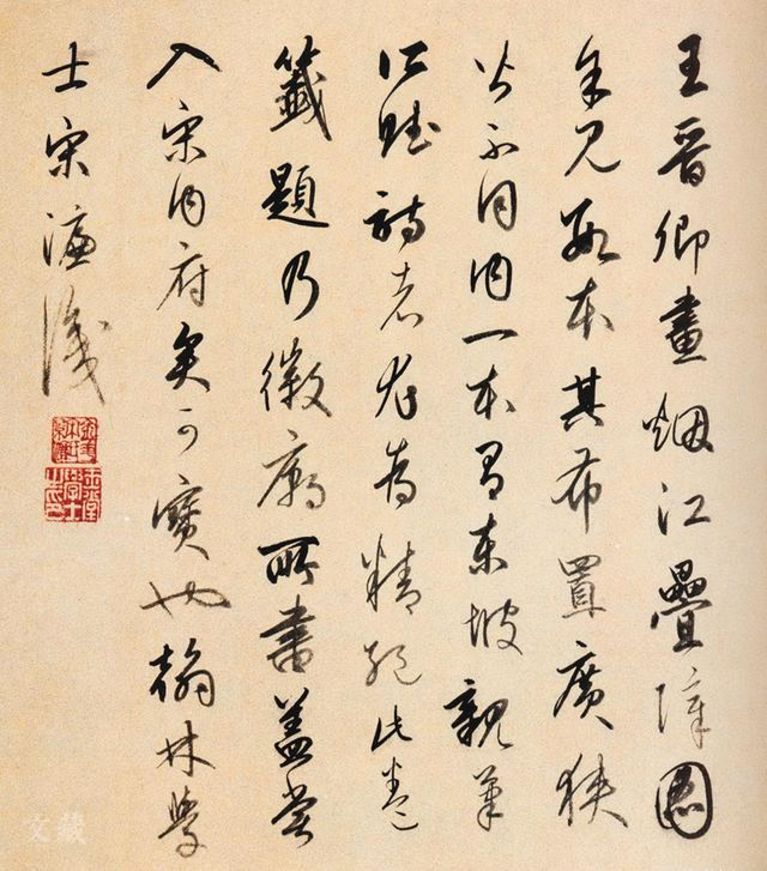 王晉卿畫烟江疊嶂圖
余見數本其布置廣狹
皆不同内一本有東坡親筆
所賦詩者尤為精絶此卷
籤題乃徽廟所書蓋嘗
入宋内府矣可寶也翰林學
士宋濂識
文藏